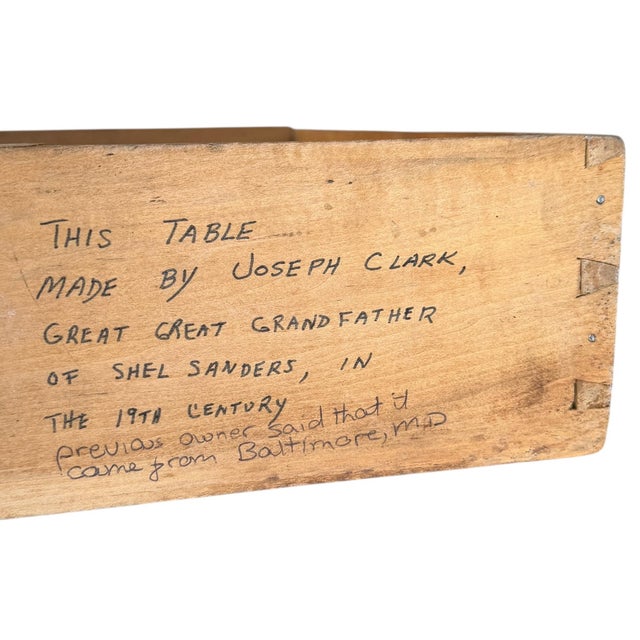 THIS TABLE
MADE BY JOSEPH CLARK,
GREAT GREAT GRANDFATHER
OF SHEL SANDERS, IN
THE 19TH CENTURY
previous owner said that it
came from Baltimore, MD